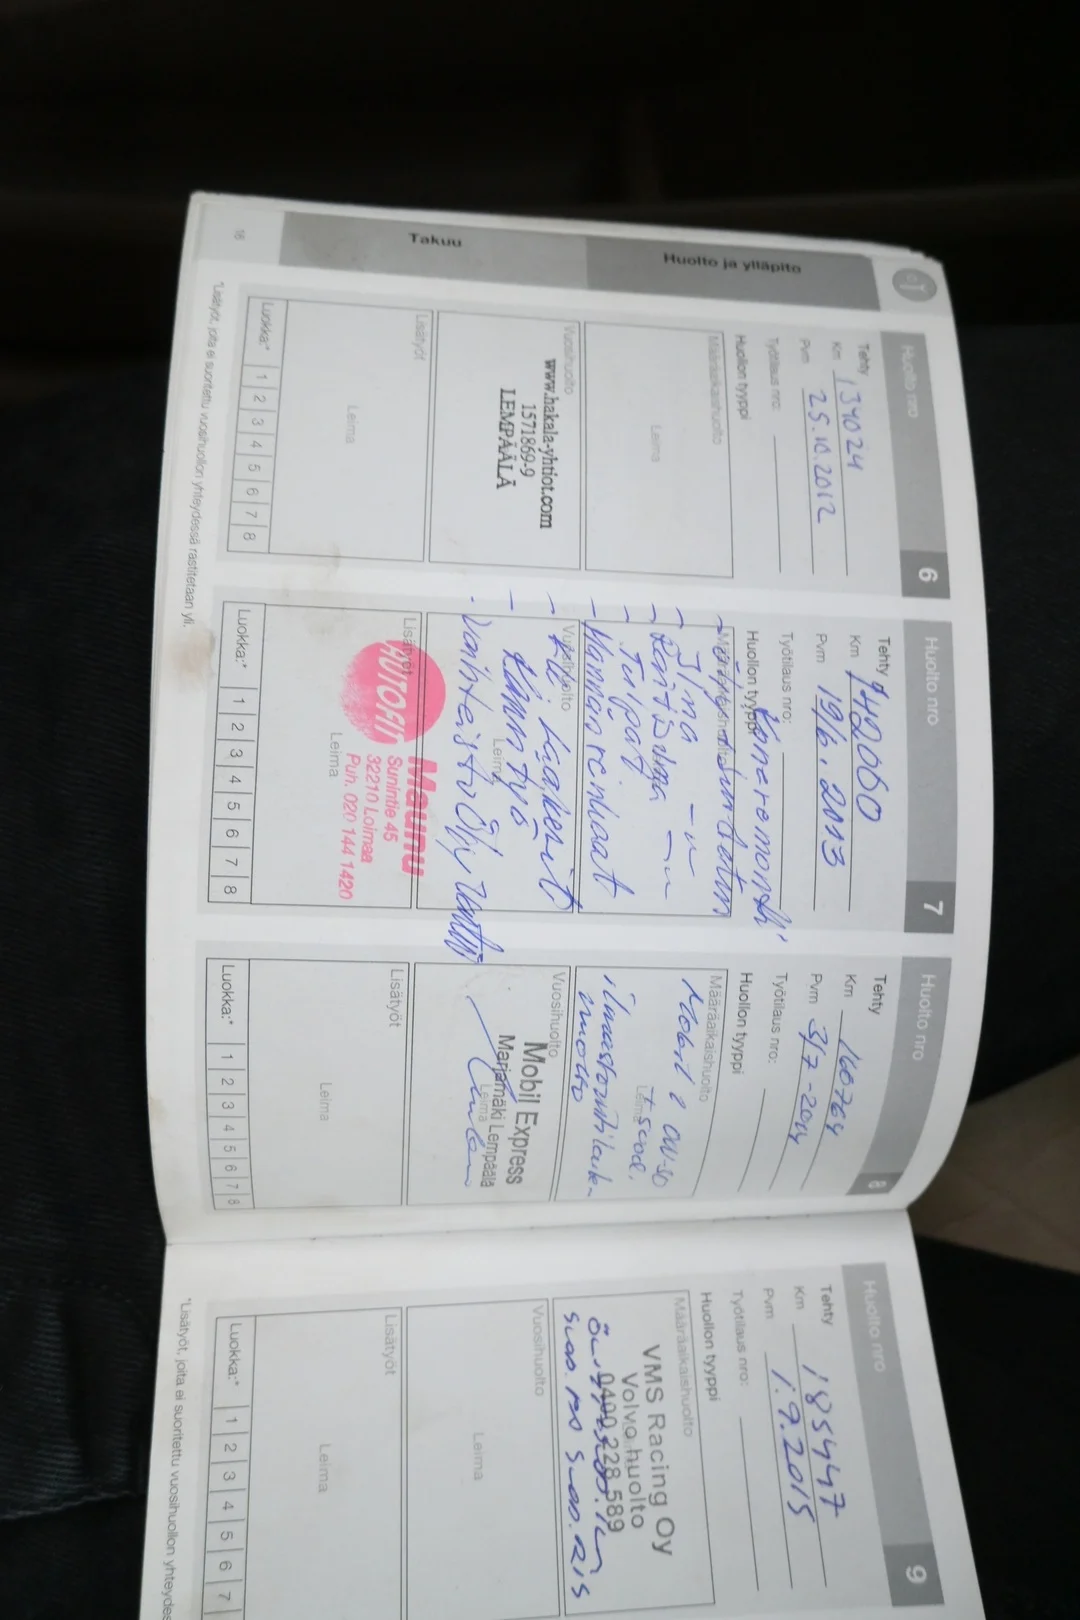 Huolto ja ylläpito
Takuu
16
Huolto nro 6
Tehty
Km 134024
Pvm 25.10.2012
Työtilaus nro:
Huollon tyyppi
Määräaikaishuolto
Leima
Vuosihuolto
www.hakala-yhtiot.com
1571869-9
LEMPÄÄLÄ
Lisätyöt
Leima
Luokka:* 1 2 3 4 5 6 7 8
*Lisätyöt, joita ei suoritettu vuosihuollon yhteydessä rastitetaan yli.
Huolto nro 7
Tehty
Km 142060
Pvm 19/6.2013
Työtilaus nro:
Huollon tyyppi
Koneremontti
Määräaikaishuolto
- Ilma - " -
- Tulpat
- Hannanrenkaat
Vuosihuolto
Leima
Lisätyöt
AUTOFIT
Maunu
Sunintie 45
32210 Loimaa
Puh. 020 144 1420
Leima
Luokka:* 1 2 3 4 5 6 7 8
Huolto nro 8
Tehty
Km 160764
Pvm 3/7-2014
Työtilaus nro:
Huollon tyyppi
Määräaikaishuolto
Mobil 1 0W-30
+ suod.
Leima
Vuosihuolto
Mobil Express
Marjamäki Lempäälä
Leima
Lisätyöt
Leima
Luokka:* 1 2 3 4 5 6 7 8
Huolto nro 9
Tehty
Km 185447
Pvm 1.9.2015
Työtilaus nro:
Huollon tyyppi
Määräaikaishuolto
VMS Racing Oy
Volvo huolto
0400 228 589
Vuosihuolto
Leima
Lisätyöt
Leima
Luokka:* 1 2 3 4 5 6 7
*Lisätyöt, joita ei suoritettu vuosihuollon yhteydes